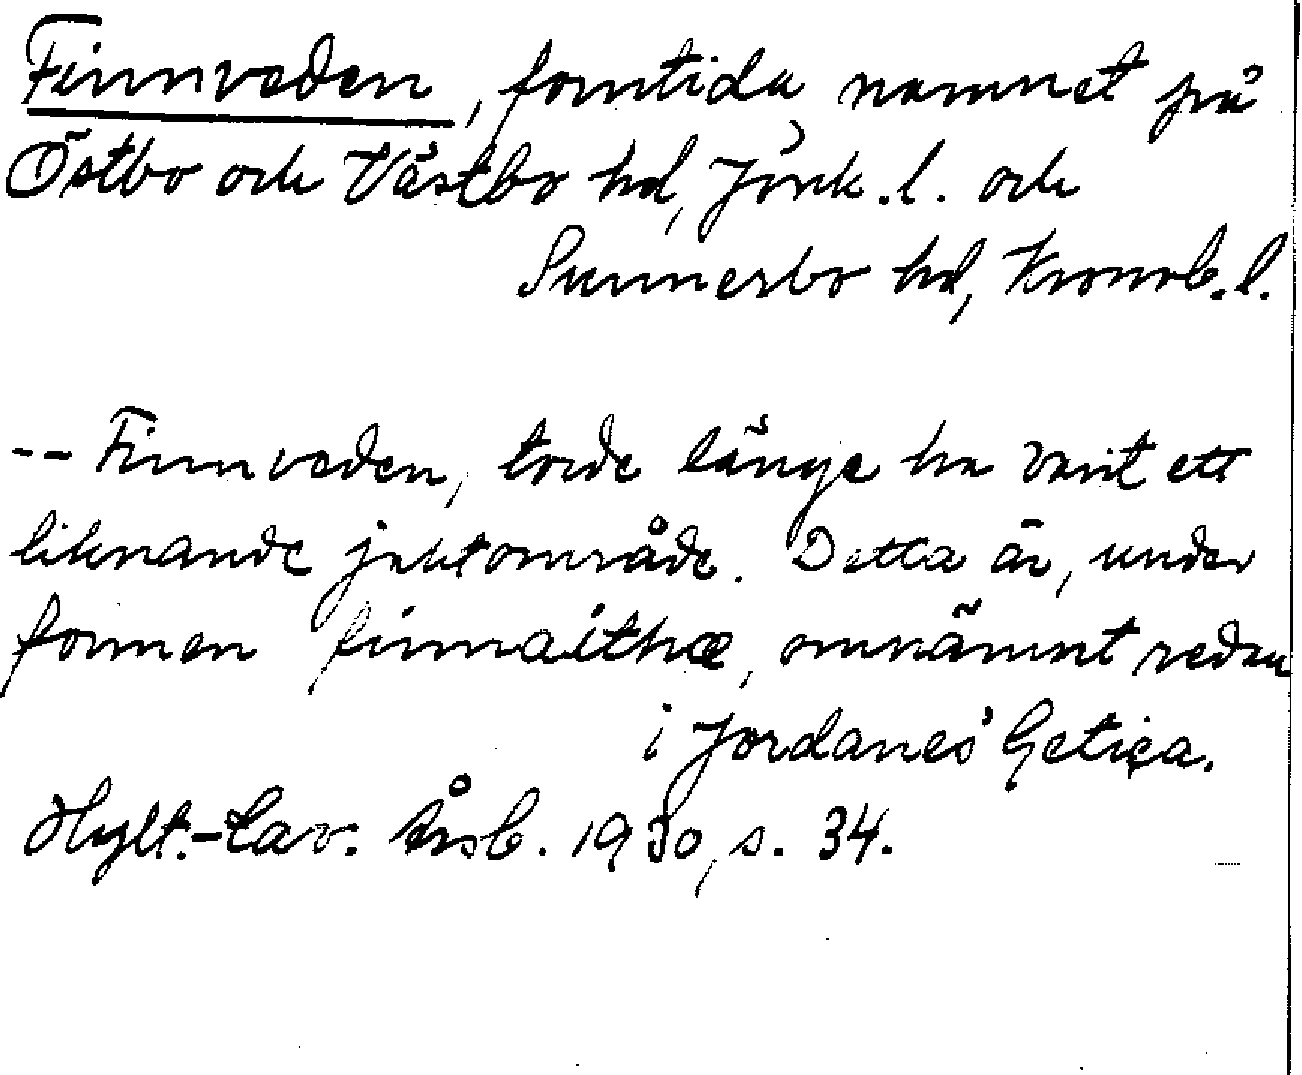 Finnveden, forntida namnet på
Östbo och Västbo hd, Jönk.l. och
Sunnerbo hd, Kronob.l.
-- Finnveden, torde länge ha varit ett
liknande jaktområde. Detta är, under
formen finnaithæ, omnämnt redan
i Jordanes' Getica.
Hylt.-Cav. Årsb. 1930, s. 34.